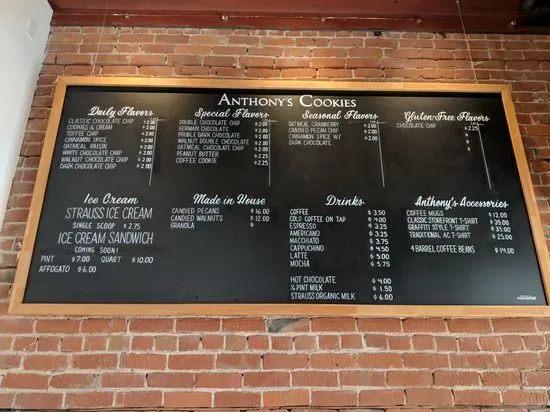 ANTHONY'S COOKIES
Daily Flavors
CLASSIC CHOCOLATE CHIP $2.00
COOKIES & CREAM $2.00
TOFFEE CHIP $2.00
CINNAMON SPICE $2.00
OATMEAL RAISIN $2.00
WHITE CHOCOLATE CHIP $2.00
WALNUT CHOCOLATE CHIP $2.00
DARK CHOCOLATE CHIP $2.00
Special Flavors
DOUBLE CHOCOLATE CHIP $2.00
GERMAN CHOCOLATE $2.00
DOUBLE DARK CHOCOLATE $2.00
WALNUT DOUBLE CHOCOLATE $2.00
OATMEAL CHOCOLATE CHIP $2.00
PEANUT BUTTER $2.25
COFFEE COOKIE $2.25
Seasonal Flavors
OATMEAL CRANBERRY $2.00
CANDIED PECAN CHIP $2.00
CINNAMON SPICE W/ $2.00
DARK CHOCOLATE
Gluten-Free Flavors
CHOCOLATE CHIP $2.25
$
$
$
Ice Cream
STRAUSS ICE CREAM
SINGLE SCOOP $2.75
ICE CREAM SANDWICH
COMING SOON!
PINT $7.00 QUART $10.00
AFFOGATO $6.00
Made in House
CANDIED PECANS $16.00
CANDIED WALNUTS $12.00
GRANOLA $
Drinks
COFFEE $3.50
COLD COFFEE ON TAP $4.00
ESPRESSO $3.25
AMERICANO $3.25
MACCHIATO $3.75
CAPPUCCINO $4.50
LATTE $5.00
MOCHA $5.75
HOT CHOCOLATE $4.00
½ PINT MILK $1.50
STRAUSS ORGANIC MILK $6.00
Anthony's Accessories
COFFEE MUGS $12.00
CLASSIC STOREFRONT T-SHIRT $35.00
GRAFFITI STYLE T-SHIRT $35.00
TRADITIONAL AC T-SHIRT $25.00
4 BARREL COFFEE BEANS $14.00